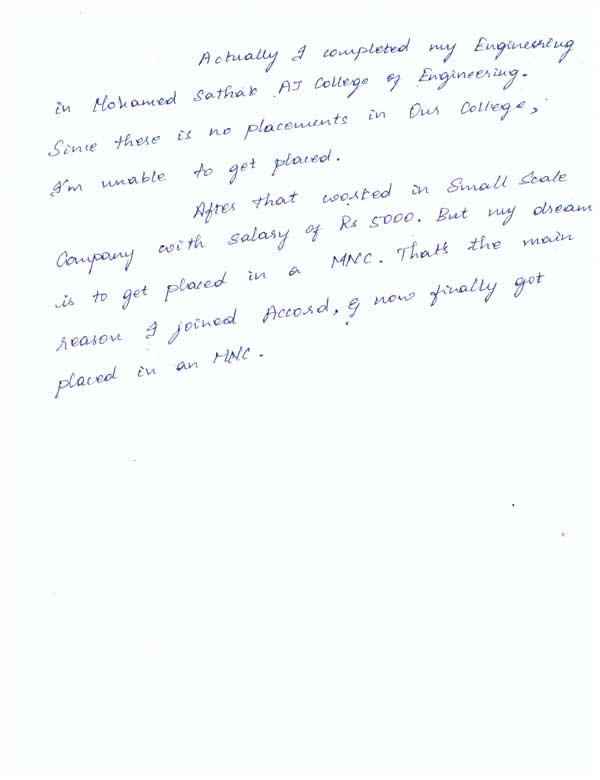 Actually I completed my Engineering
in Mohamed Sathak AJ College of Engineering.
Since there is no placements in Our College,
I'm unable to get placed.
After that worked in Small Scale
Company with salary of Rs 5000. But my dream
is to get placed in a MNC. That's the main
reason I joined Accord, & now finally got
placed in an MNC.